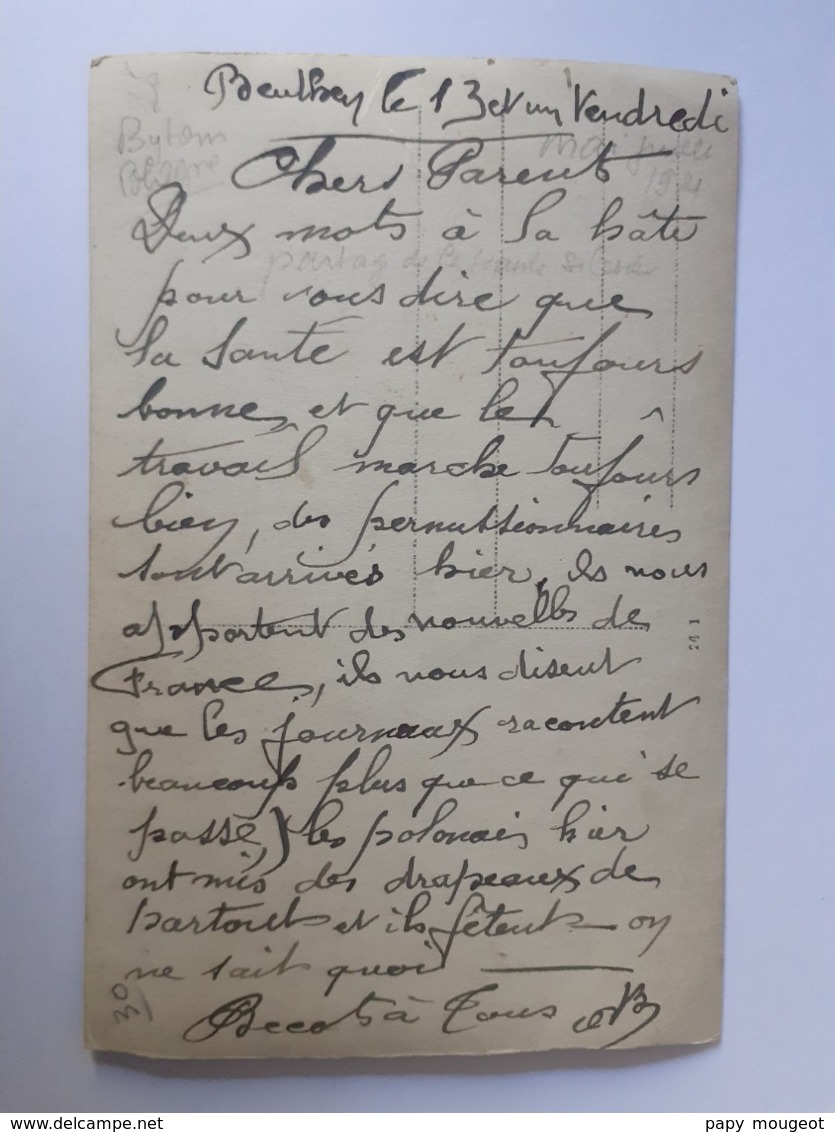 Beuthen le 13 et un Vendredi
Bytom
Pologne
mai juillet
1921
Chers Parent
Deux mots à la hâte
partag de la haute Silesie
pour vous dire que
la santé est toujours
bonne, et que le
travail marche toujours
bien, des permissionnaires
sont arrivés hier, ils nous
apportent des nouvelles de
France, ils nous disent
que les journaux racontent
beaucoup plus que ce qui se
passe, les polonais hier
ont mis des drapeaux de
partout et ils fêtent on
ne sait quoi
30
Becots à Tous
delcampe.net
papy mougeot